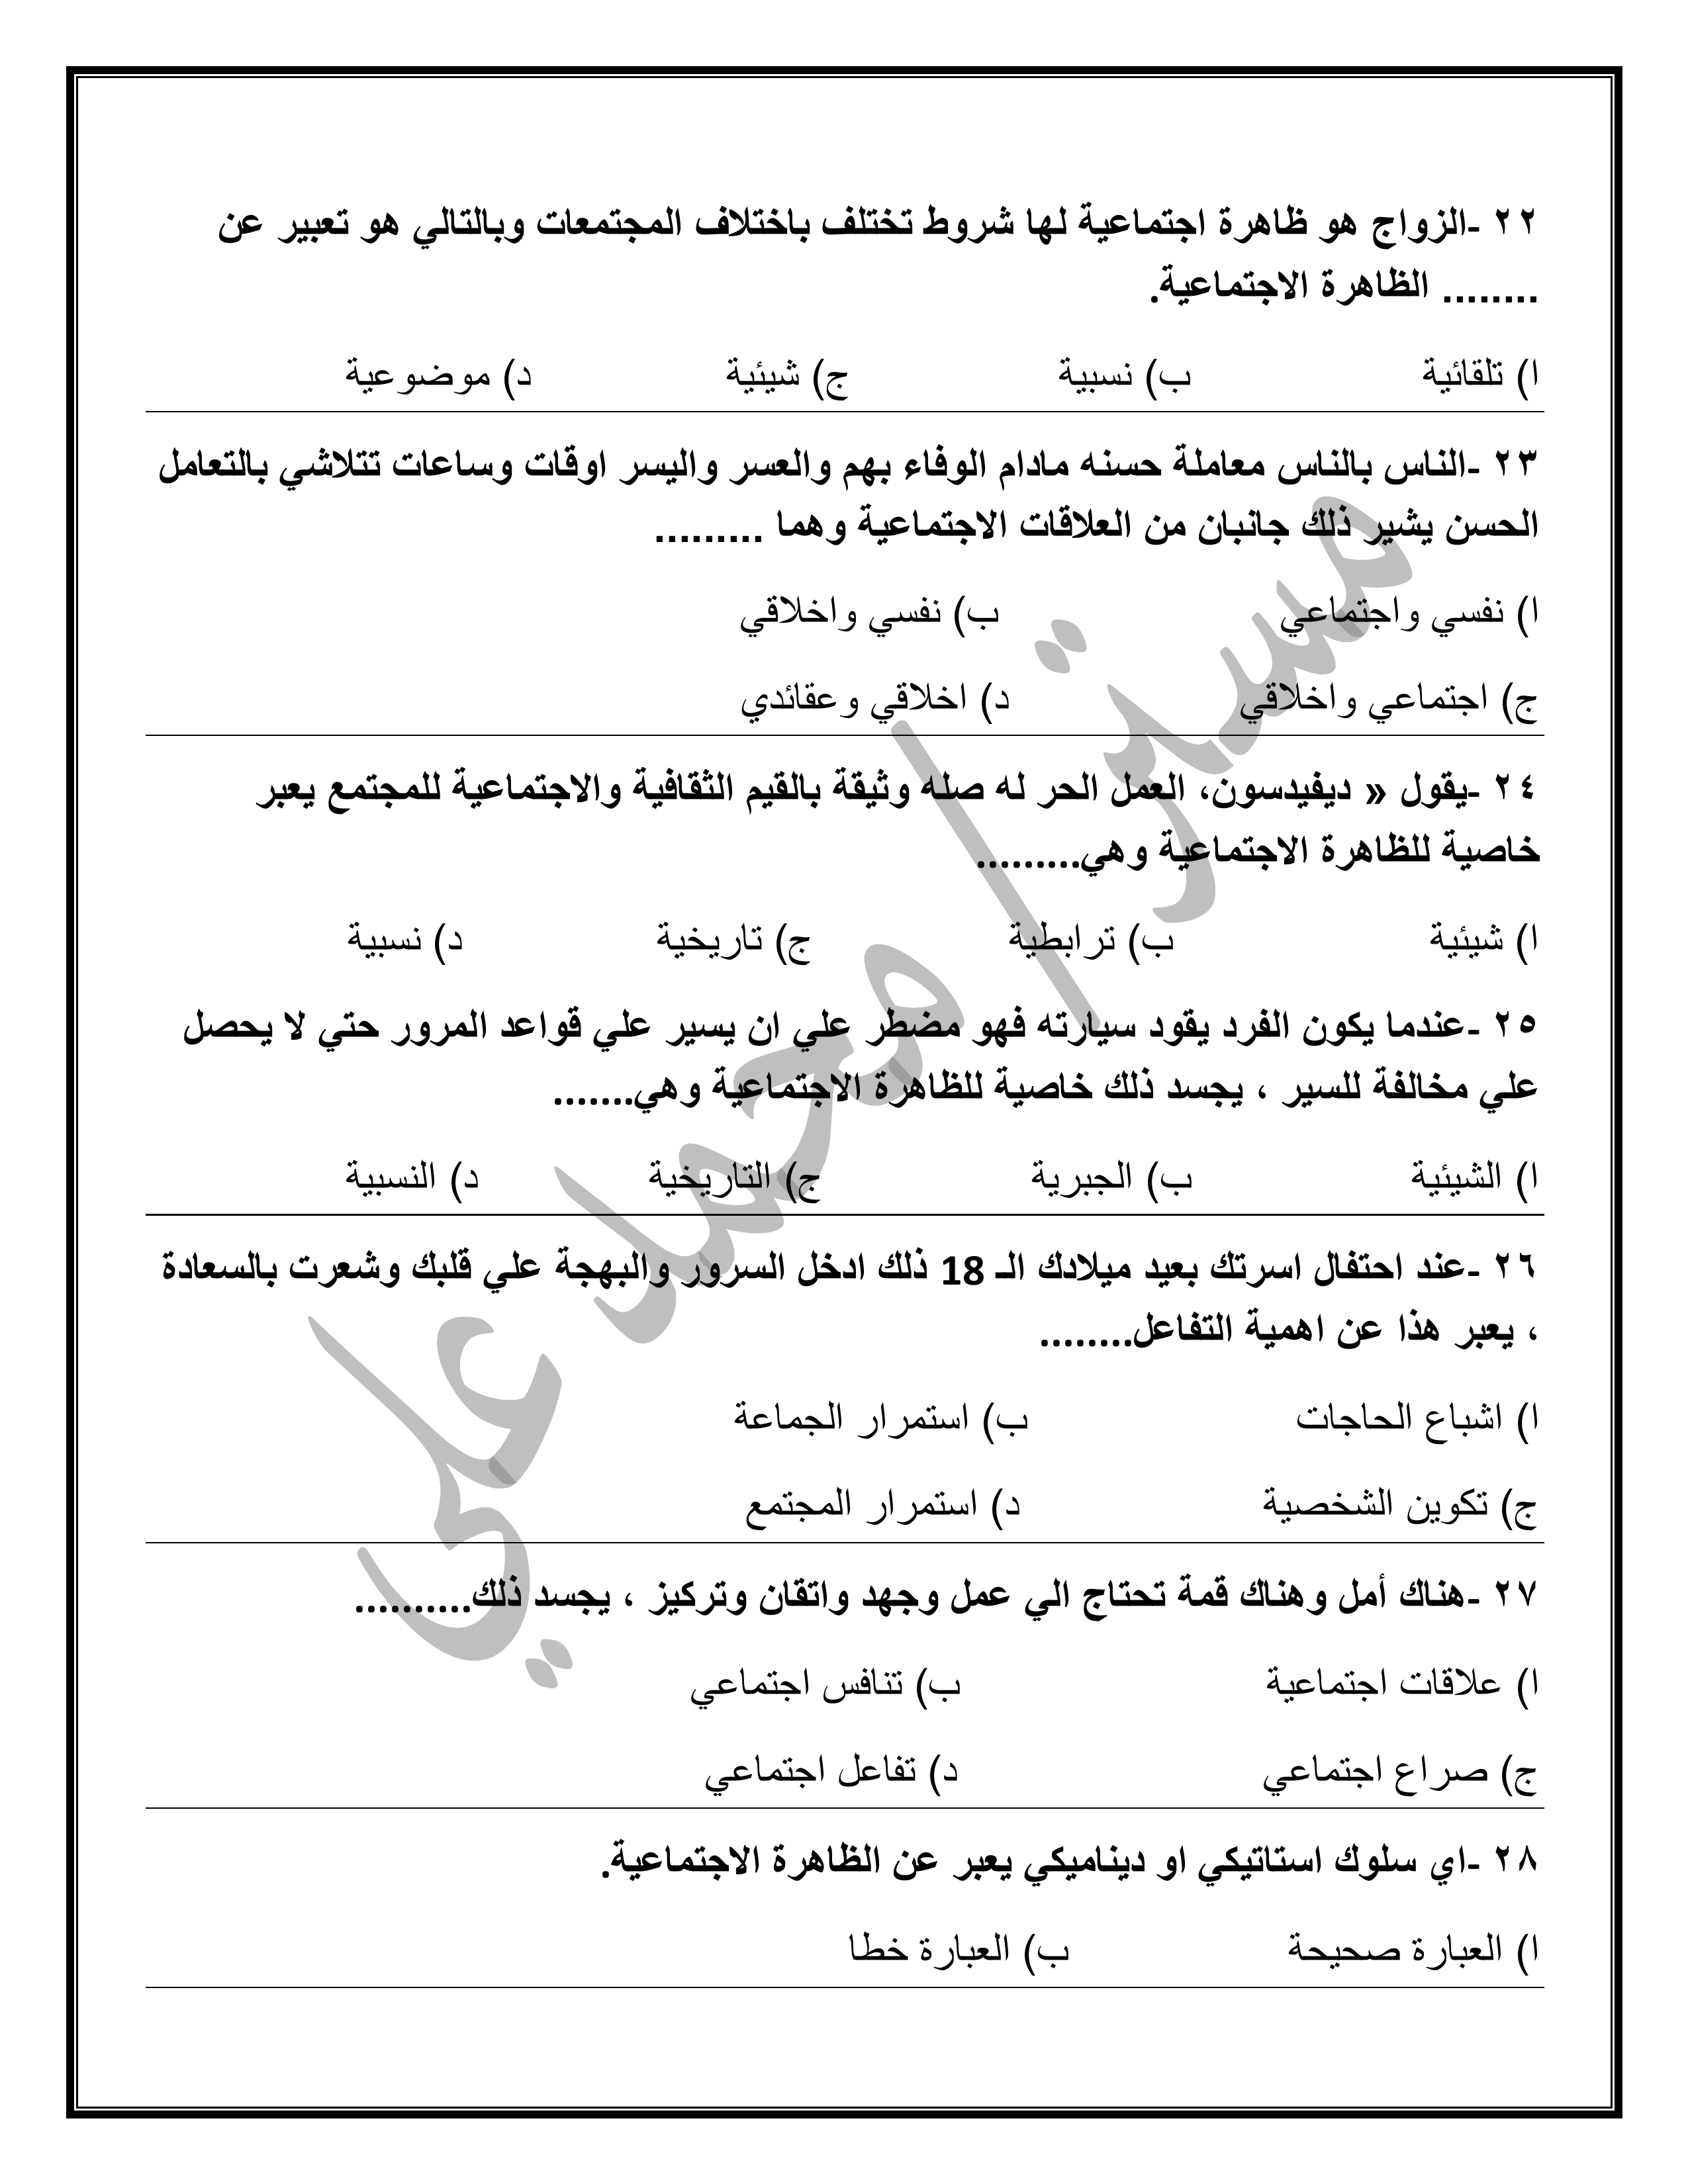 ٢٢ -الزواج هو ظاهرة اجتماعية لها شروط تختلف باختلاف المجتمعات وبالتالي هو تعبير عن
........ الظاهرة الاجتماعية.
ا) تلقائية ب) نسبية ج) شيئية د) موضوعية
٢٣ -الناس بالناس معاملة حسنه مادام الوفاء بهم والعسر واليسر اوقات وساعات تتلاشي بالتعامل
الحسن يشير ذلك جانبان من العلاقات الاجتماعية وهما .........
ا) نفسي واجتماعي ب) نفسي واخلاقي
ج) اجتماعي واخلاقي د) اخلاقي وعقائدي
٢٤ -يقول « ديفيدسون، العمل الحر له صله وثيقة بالقيم الثقافية والاجتماعية للمجتمع يعبر
خاصية للظاهرة الاجتماعية وهي.........
ا) شيئية ب) ترابطية ج) تاريخية د) نسبية
٢٥ -عندما يكون الفرد يقود سيارته فهو مضطر علي ان يسير علي قواعد المرور حتي لا يحصل
علي مخالفة للسير ، يجسد ذلك خاصية للظاهرة الاجتماعية وهي.......
ا) الشيئية ب) الجبرية ج) التاريخية د) النسبية
٢٦ -عند احتفال اسرتك بعيد ميلادك الـ 18 ذلك ادخل السرور والبهجة علي قلبك وشعرت بالسعادة
، يعبر هذا عن اهمية التفاعل........
ا) اشباع الحاجات ب) استمرار الجماعة
ج) تكوين الشخصية د) استمرار المجتمع
٢٧ -هناك أمل وهناك قمة تحتاج الي عمل وجهد واتقان وتركيز ، يجسد ذلك..........
ا) علاقات اجتماعية ب) تنافس اجتماعي
ج) صراع اجتماعي د) تفاعل اجتماعي
٢٨ -اي سلوك استاتيكي او ديناميكي يعبر عن الظاهرة الاجتماعية.
ا) العبارة صحيحة ب) العبارة خطا
مستر/ محمد علي